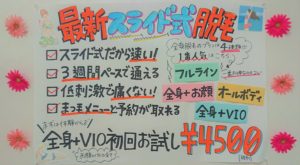 最新スライド式脱毛
スライド式だから速い!
3週間ペースで通える
低刺激で痛くない!
まつ毛メニューと予約が取れる
全身脱毛のプランは4種類!
1番人気は
フルライン
全身+お顔
オールボディ
全身+VIO
全身+VIO初回お試し
¥4500